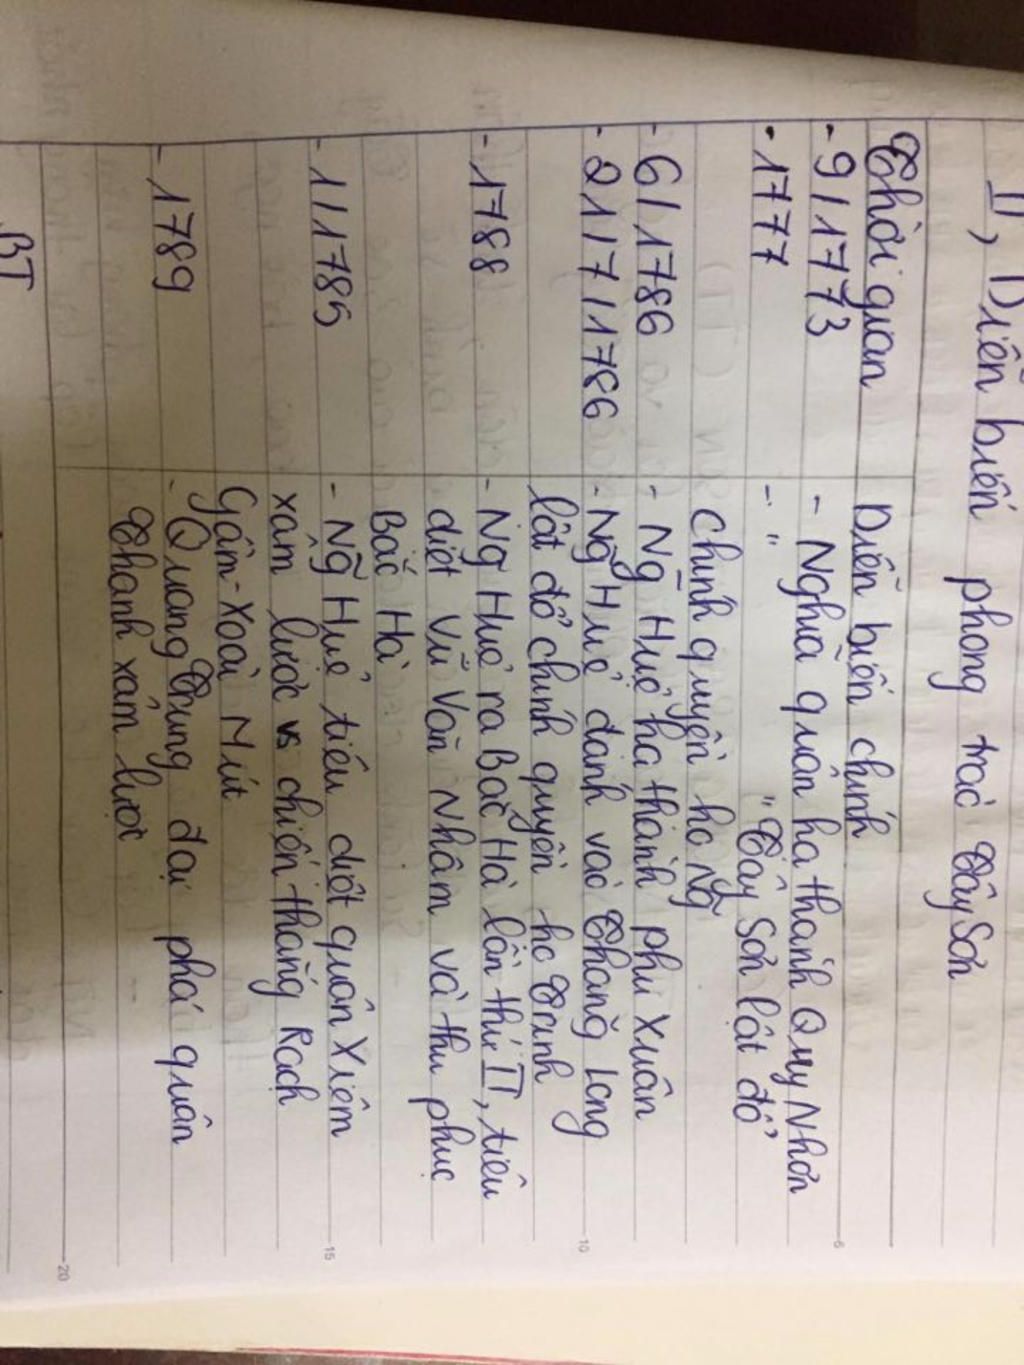 II, Diễn biến phong trào Tây Sơn
Thời gian Diễn biến chính
- 9/1773 - Nghĩa quân hạ thành Quy Nhơn
- 1777 - " " Tây Sơn lật đổ
chính quyền họ Ng~
- 6/1786 - Ng~ Huệ hạ thành phú Xuân
- 21/7/1786 - Ng~ Huệ đánh vào Thăng Long
lật đổ chính quyền họ Trịnh
- 1788 - Ng Huệ ra Bắc Hà lần thứ II, tiêu
diệt Vũ Văn Nhậm và thu phục
Bắc Hà
- 1/1785 - Ng~ Huệ tiêu diệt quân Xiêm
xâm lược vs chiến thắng Rạch
Gầm-Xoài Mút
- 1789 - Quang Trung đại phá quân
Thanh xâm lược
BT
5
10
15
20